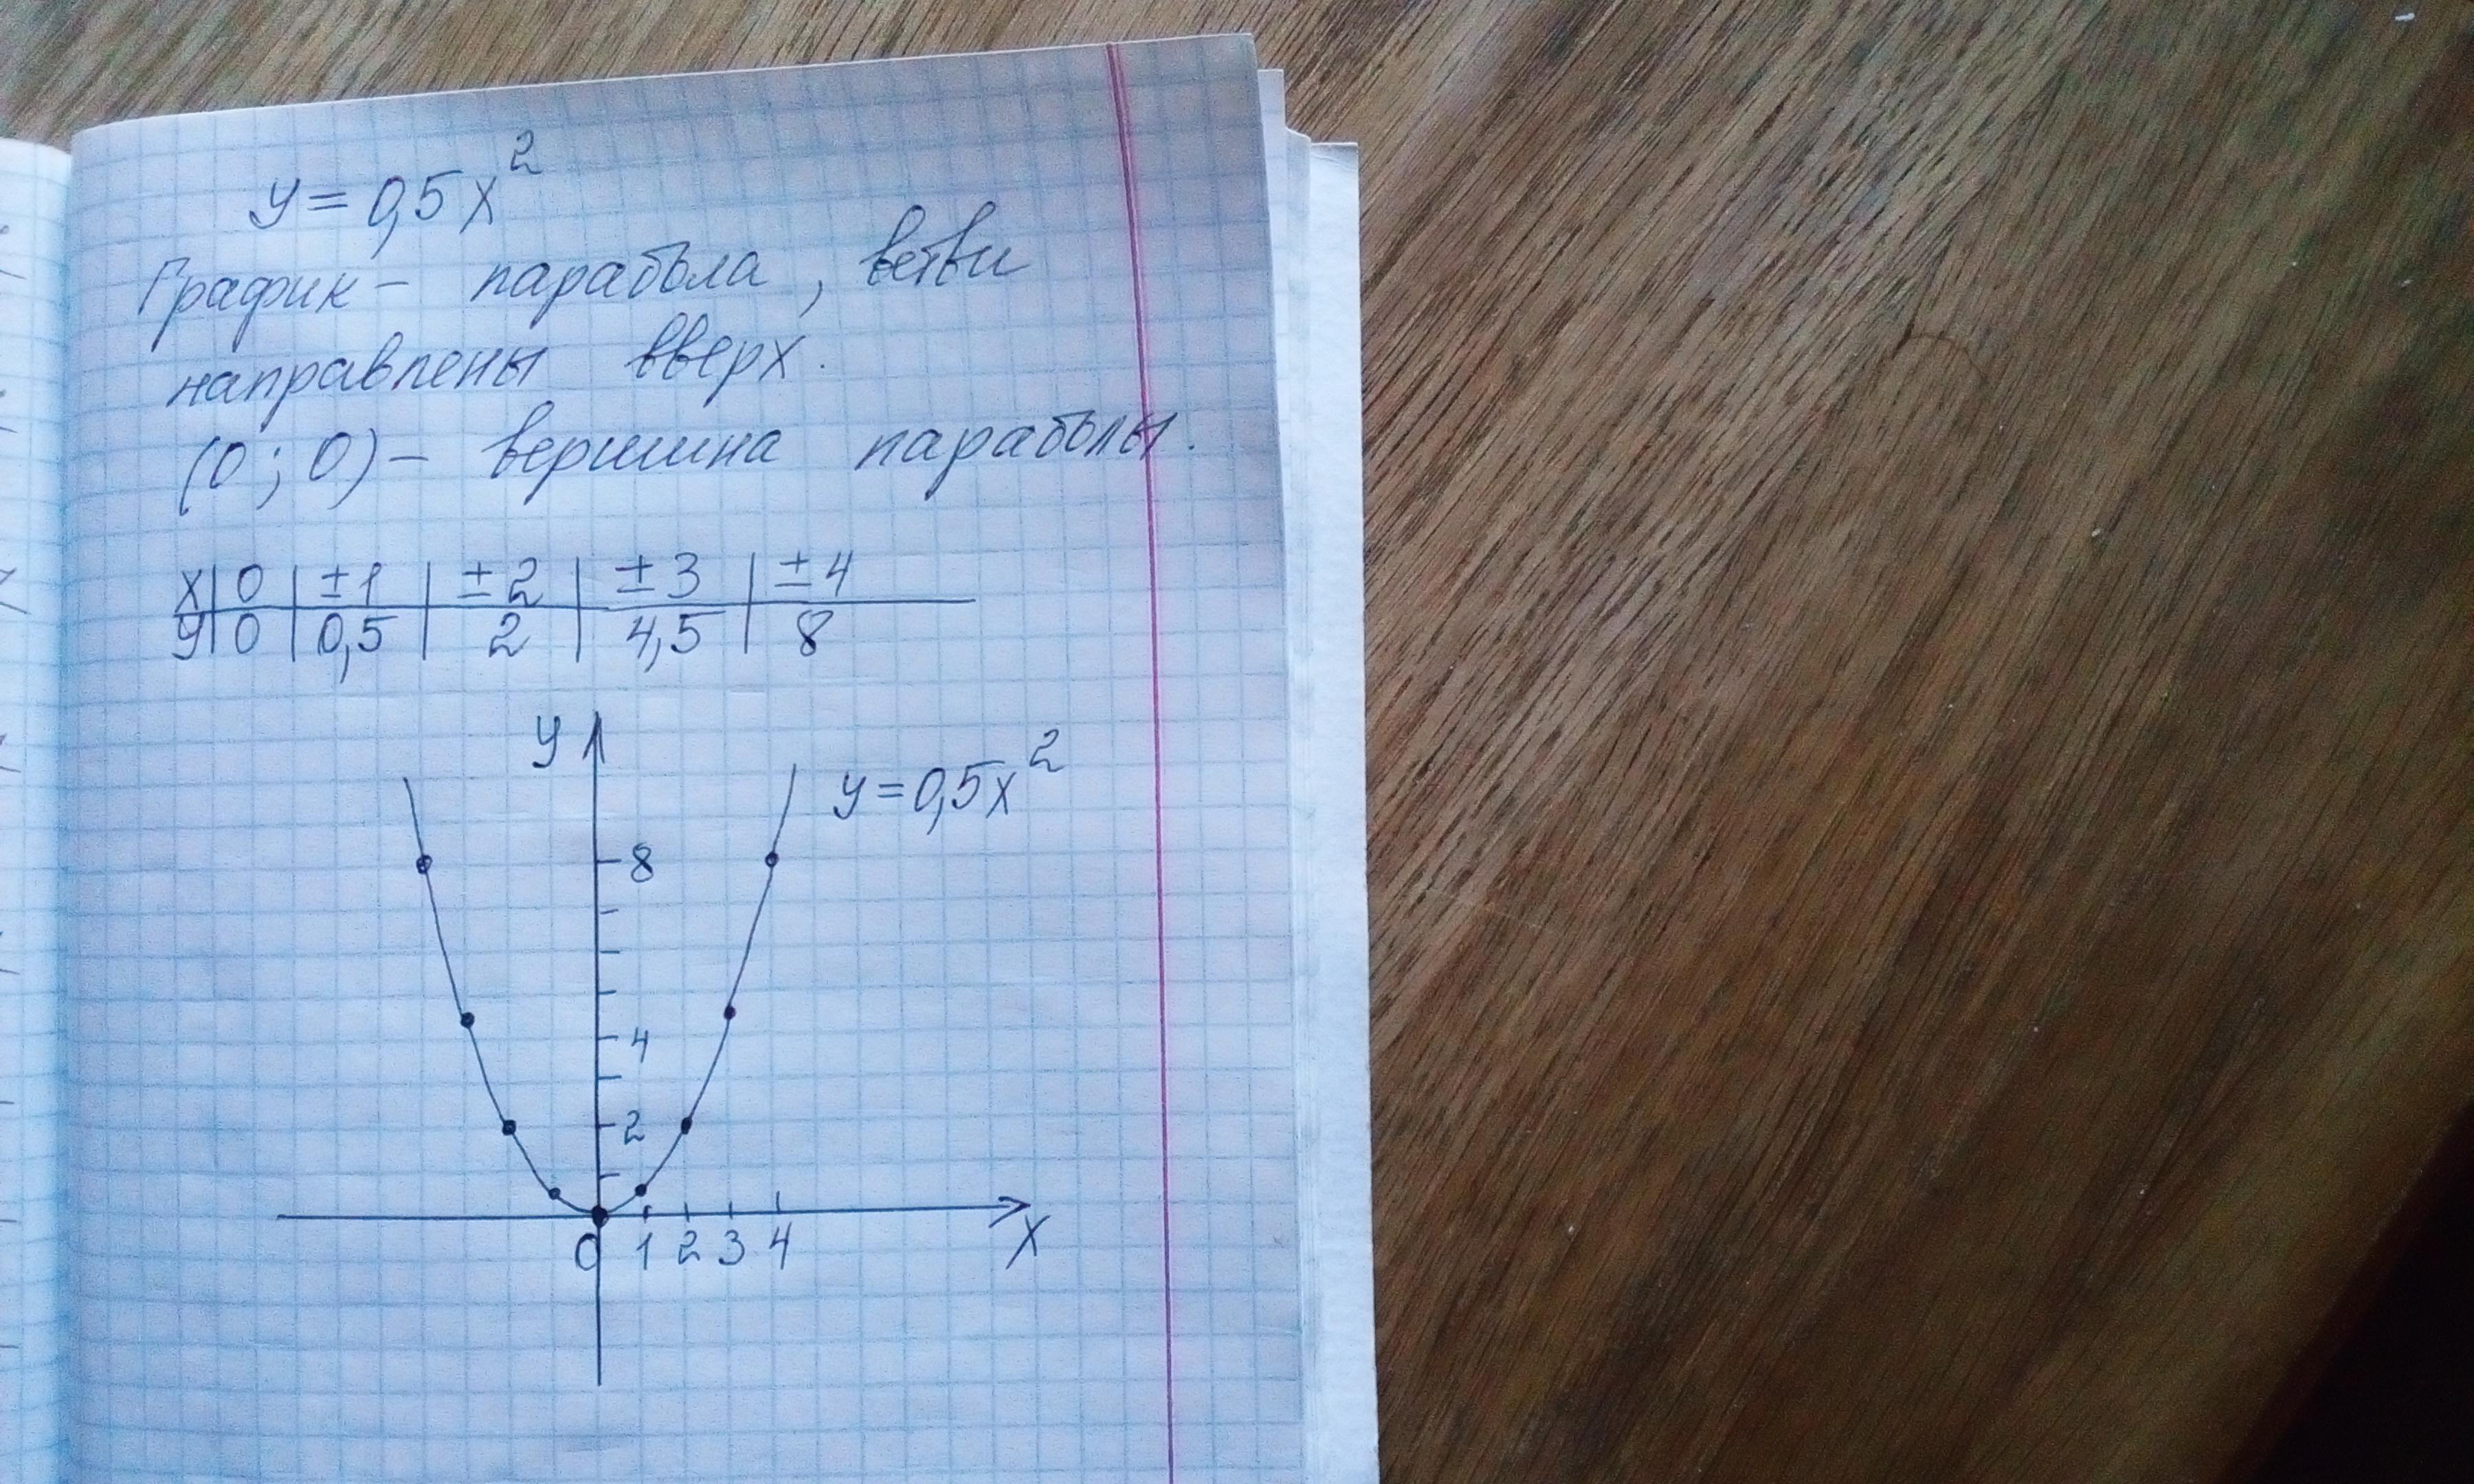 y = 0,5x²
График – парабола, ветви
направлены вверх.
(0; 0) – вершина параболы.
x | 0 | ±1 | ±2 | ±3 | ±4
y | 0 | 0,5 | 2 | 4,5 | 8
y
y = 0,5x²
8
4
2
0 1 2 3 4 x